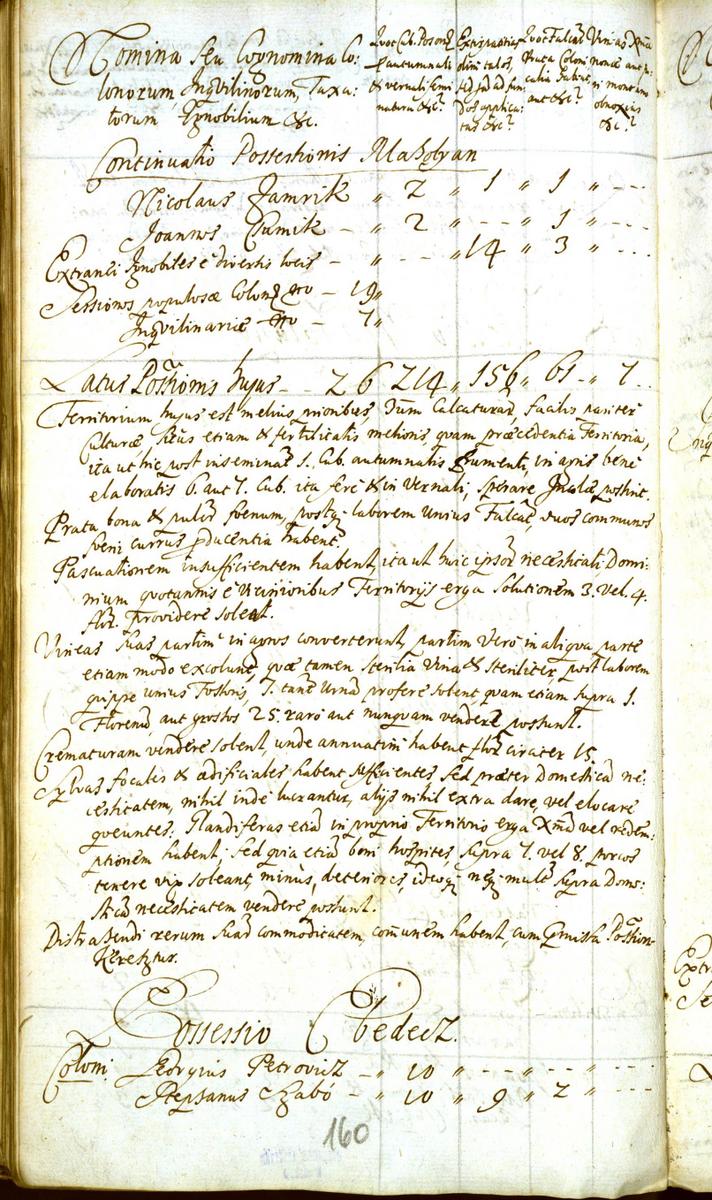 Nomina seu Cognomina Co:
lonorum, Inqvilinorum, Taxa:
lorum Ignobilium &c.
Quot Cub. Poson:
autumnali
& vernali semi
natura &c?
Extirpatitios
olim
sed
dos applica
tas &c?
Quot Falcat:
Prata Coloni
calia habent
aut &c?
Vineas Xmæ
nonæ aut
si montano
obnoxias
&c?
Continuatio Possessionis Maholyan
Nicolaus Jamrik „ 2 „ 1 „ 1 „ ---
Joannes Csmik - „ 2 „ -- „ 1 „ ---
Extranei Ignobiles è diversis locis - „ -- „ 14 „ 3 „ ---
Sessiones populosæ Colon: No - 19„
Inqvilinariæ No - 7„
Latus Possionis hujus -- 26 214 „ 156 „ 61 - „ 7 --
Territorium hujus est melius prioribus, dum Calcaturæ, facilis pariter
Culturæ, situs etiam & fertilitatis melioris, quam præcedentia Territoria,
ita ut hic post inseminat 1. Cub. autumnalis frumenti, in agris bene
elaboratis 6. aut 7. Cub. ita fere & in Vernali, sperare Incolæ possint.
Prata bona & pulch foenum, post laborem Unius Falcat, duos communes
foeni currus producentia habent.
Pascuationem insufficientem habent, ita ut huic ipsor necessitati, Domi:
nium quotannis è Vicinioribus Territorijs erga solutionem 3. vel. 4.
flor. providere soleat.
Vineas suas partim in agros converterunt, partim vero in aliqua parte
etiam modo excolunt, quæ tamen sterilia Vina & steriliter, post laborem
quippe unius Fossoris, 7. tant Urnæ proferre solent quam etiam supra 1.
Florenum, aut grossos 25. raro aut nunquam vendere possunt.
Crematuram vendere solent, unde annuatim habent flor circiter 15.
Sylvas focales & ædificiales habent sufficientes sed præter Domesticam ne:
cessitatem, nihil inde lucrantur, alijs nihil extra dare, vel elocare
qveuntes: Glandiferas etiam in proprio Territorio erga Xmam vel redem:
ptionem habent; sed quia etiam boni hospites, supra 7. vel 8. porcos
tenere vix soleant, minus, deteriores, ideoque neque multo supra Dome:
sticam necessitatem vendere possunt.
Distrahendi rerum suarum commoditatem, communem habent, cum præmissa Possion:
Keresztur.
Possessio Bedecz.
Coloni Georgius Petrovicz - „ 10 „ -- „ -- „ ---
Stephanus Szabó - „ 10 „ 9 „ 2 „ ---
160